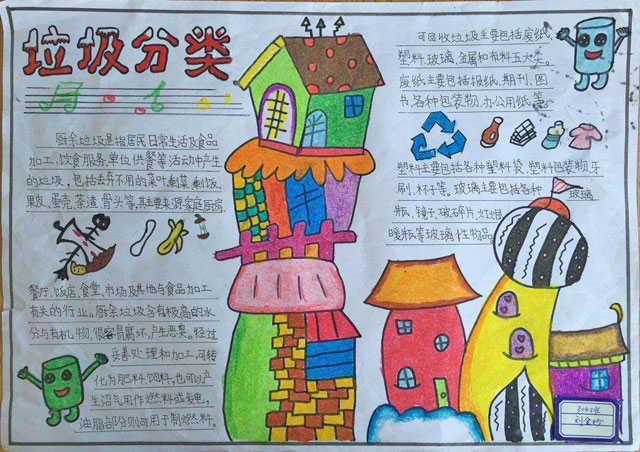 垃圾分类
厨余垃圾是指居民日常生活及食品
加工、饮食服务、单位供餐等活动中产生
的垃圾,包括丢弃不用的菜叶、剩菜、剩饭、
果皮、蛋壳、茶渣、骨头等,其主要来源家庭厨房、
餐厅、饭店、食堂、市场及其他与食品加工
有关的行业。厨余垃圾含有极高的水
分与有机物,很容易腐坏,产生恶臭。经过
妥善处理和加工,可转
化为肥料、饲料,也可以产
生沼气用作燃料或发电,
油脂部分则可用于制燃料。
可回收垃圾主要包括废纸、
塑料、玻璃、金属和布料五大类。
废纸主要包括报纸、期刊、图
书、各种包装物、办公用纸等
塑料主要包括各种塑料袋、塑料包装物、牙
刷、杯子等,玻璃主要包括各种
玻璃
瓶、镜子、破碎片、灯泡、
暖瓶等玻璃性物品